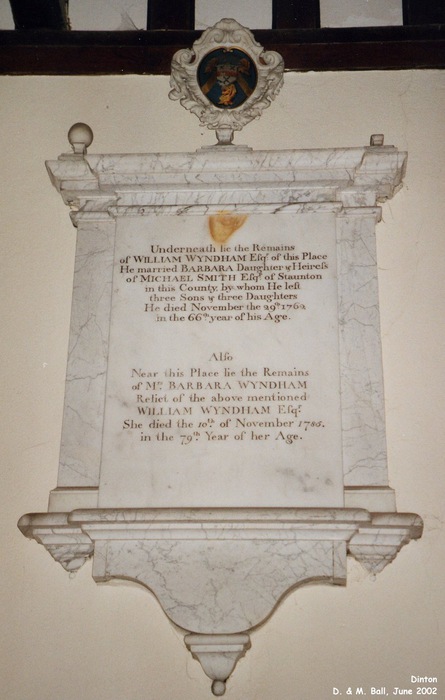 Underneath lie the Remains
of WILLIAM WYNDHAM Esqr. of this Place
He married BARBARA Daughter & Heiress
of MICHAEL SMITH Esqr. of Staunton
in this County, by whom He left
three Sons & three Daughters
He died November the 29th. 1762
in the 66th. year of his Age.
Also
Near this Place lie the Remains
of Mrs. BARBARA WYNDHAM
Relict of the above mentioned
WILLIAM WYNDHAM Esqr.
She died the 10th. of November
in the 79th. Year of her Age.
Dinton
D. & M. Ball, June 2002